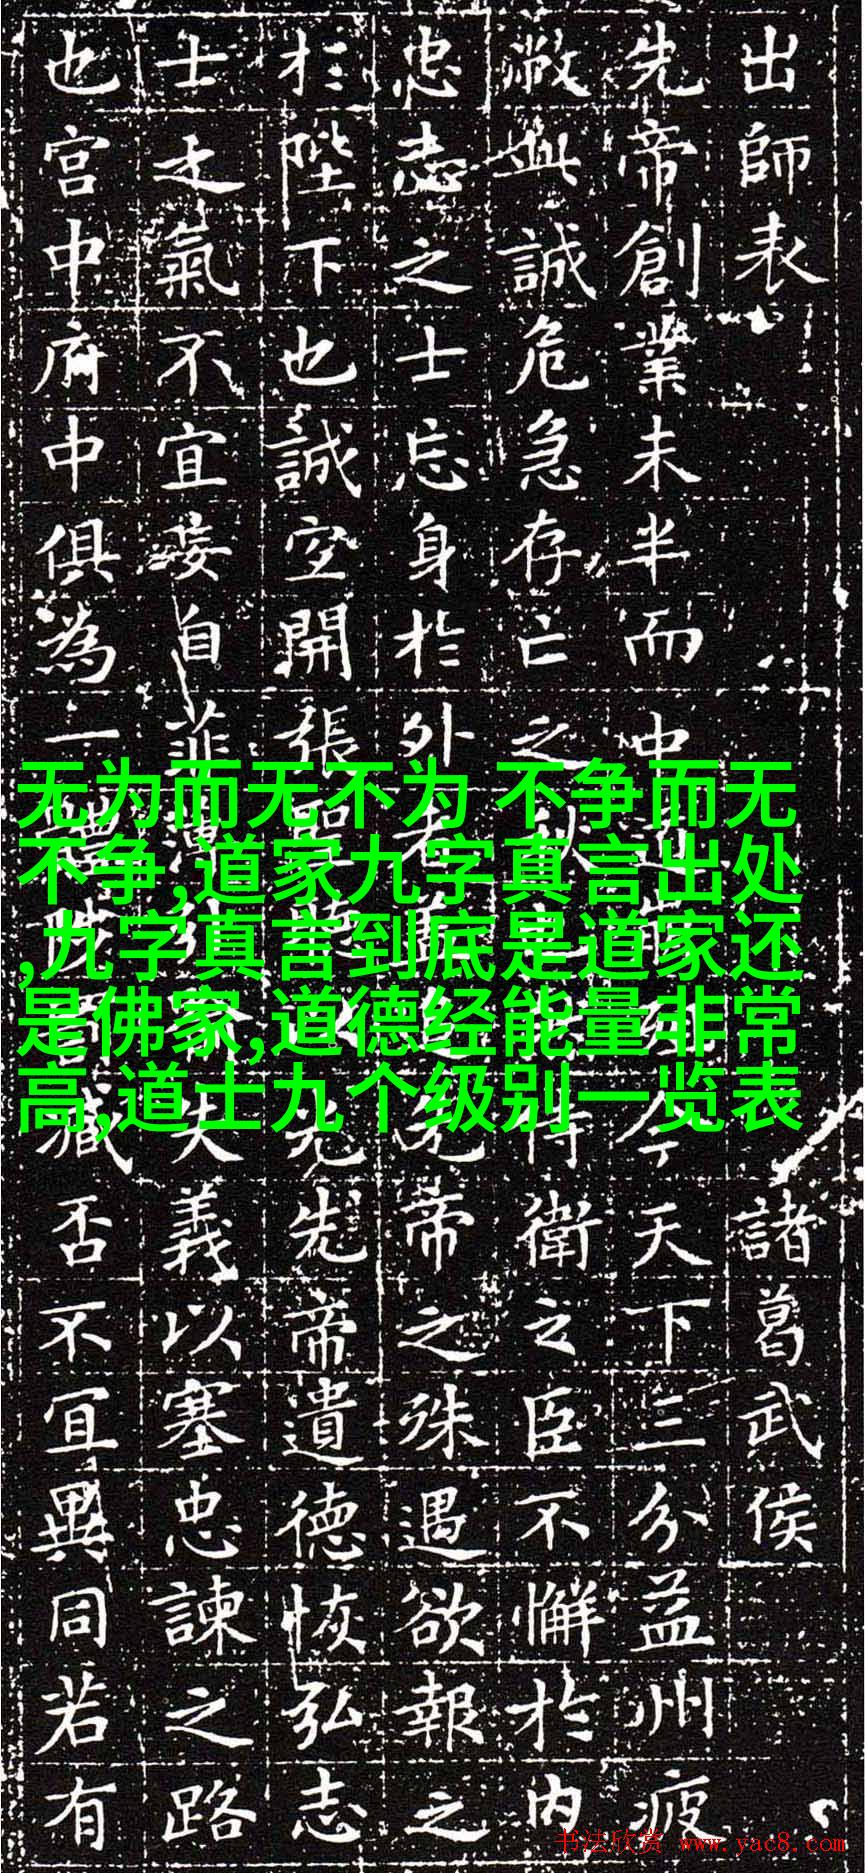 出師表 諸葛武侯
先帝創業未半而中道今天下三分益州疲
敝此誠危急存亡之秋侍衛之臣不懈於内
忠志之士忘身於外者追先帝之殊遇欲報之
於陛下也誠宜開張聖以光先帝遺德恢弘志
士之氣不宜妄自菲薄引失義以塞忠諫之路
也宫中府中俱為一體罰臧否不宜異同若有
无为而无不为 不争而无
不争,道家九字真言出处
,九字真言到底是道家还
是佛家,道德经能量非常
高,道士九个级别一览表
书法欣赏 www.yac8.com